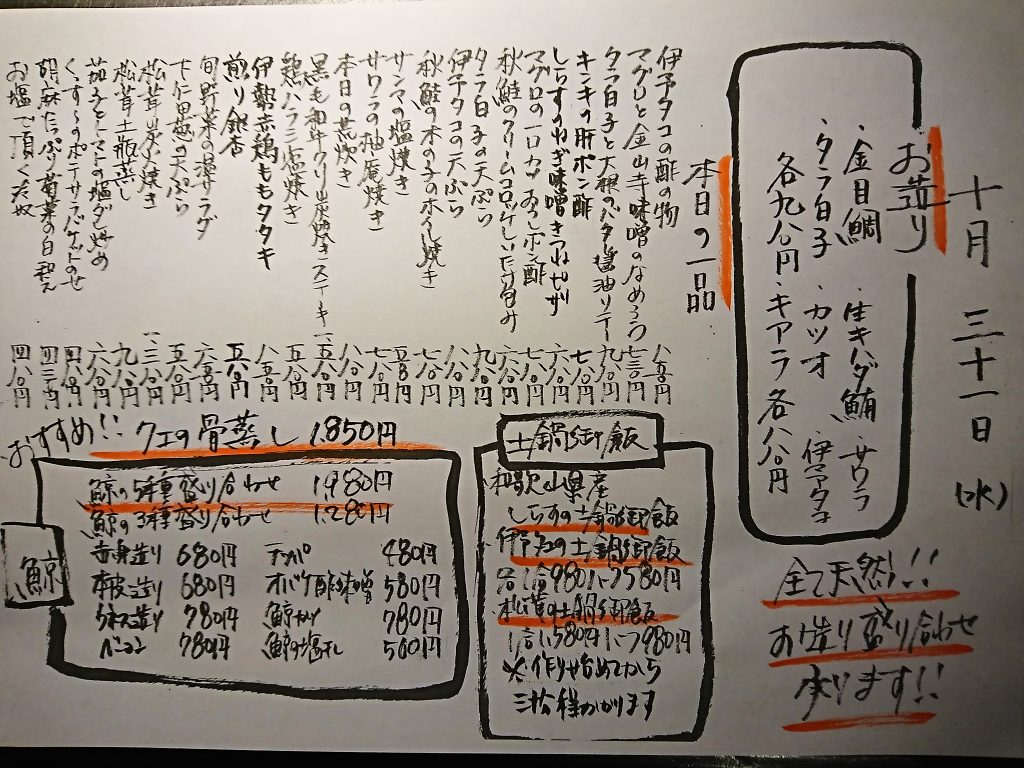 十月 三十一日 (水)
お造り
・金目鯛 ・生キハダ鮪 ・サワラ
・タラ白子 ・カツオ ・伊予タコ
各九八〇円 ・キアラ 各八八〇円
全て天然!!
お造り盛り合わせ
承ります!!
本日の一品
伊予タコの酢の物 八五〇円
マグロと金山寺味噌のなめろう 七三〇円
タラ白子と大根のバター醤油ソテー 九八〇円
キンキの肝ポン酢
しらすのねぎ味噌きつねピザ
マグロの一口カツ おろしポン酢
秋鮭のクリームコロッケしいたけ包み
タラ白子の天ぷら 九八〇円
伊予タコの天ぷら 八八〇円
秋鮭の木の子の朴葉焼き 七八〇円
サンマの塩焼き
サワラの柚庵焼き 七八〇円
本日の荒炊き
黒毛和牛クリ炭焼きステーキ 一、五八〇円
鶏ハラミ塩焼き 五八〇円
伊勢赤鶏ももタタキ 八五〇円
煎り銀杏 五八〇円
旬野菜の温サラダ 六五〇円
下仁田葱の天ぷら 五八〇円
松茸炭火焼き 一、三八〇円
松茸土瓶蒸し 九八〇円
茄子とトマトの塩ダレ炒め 六八〇円
くんすぅのポテサラバゲットのせ 四八〇円
胡麻たっぷり菊菜の白和え 四三〇円
お塩で頂く冷奴 四八〇円
おすすめ!! クエの骨蒸し 1,850円
土鍋御飯
和歌山県産
しらすの土鍋御飯
伊予タコの土鍋御飯
各1合980円 2合1580円
松茸の土鍋御飯
1合1,580円 2合2,980円
※作り始めてから
三十分程かかります
鯨
鯨の5種盛り合わせ 1,980円
鯨の3種盛り合わせ 1,280円
赤身造り 680円 テッパ 480円
本皮造り 680円 オバケ酢味噌 580円
うねす造り 780円 鯨カツ 780円
ベーコン 780円 鯨の塩干し 500円